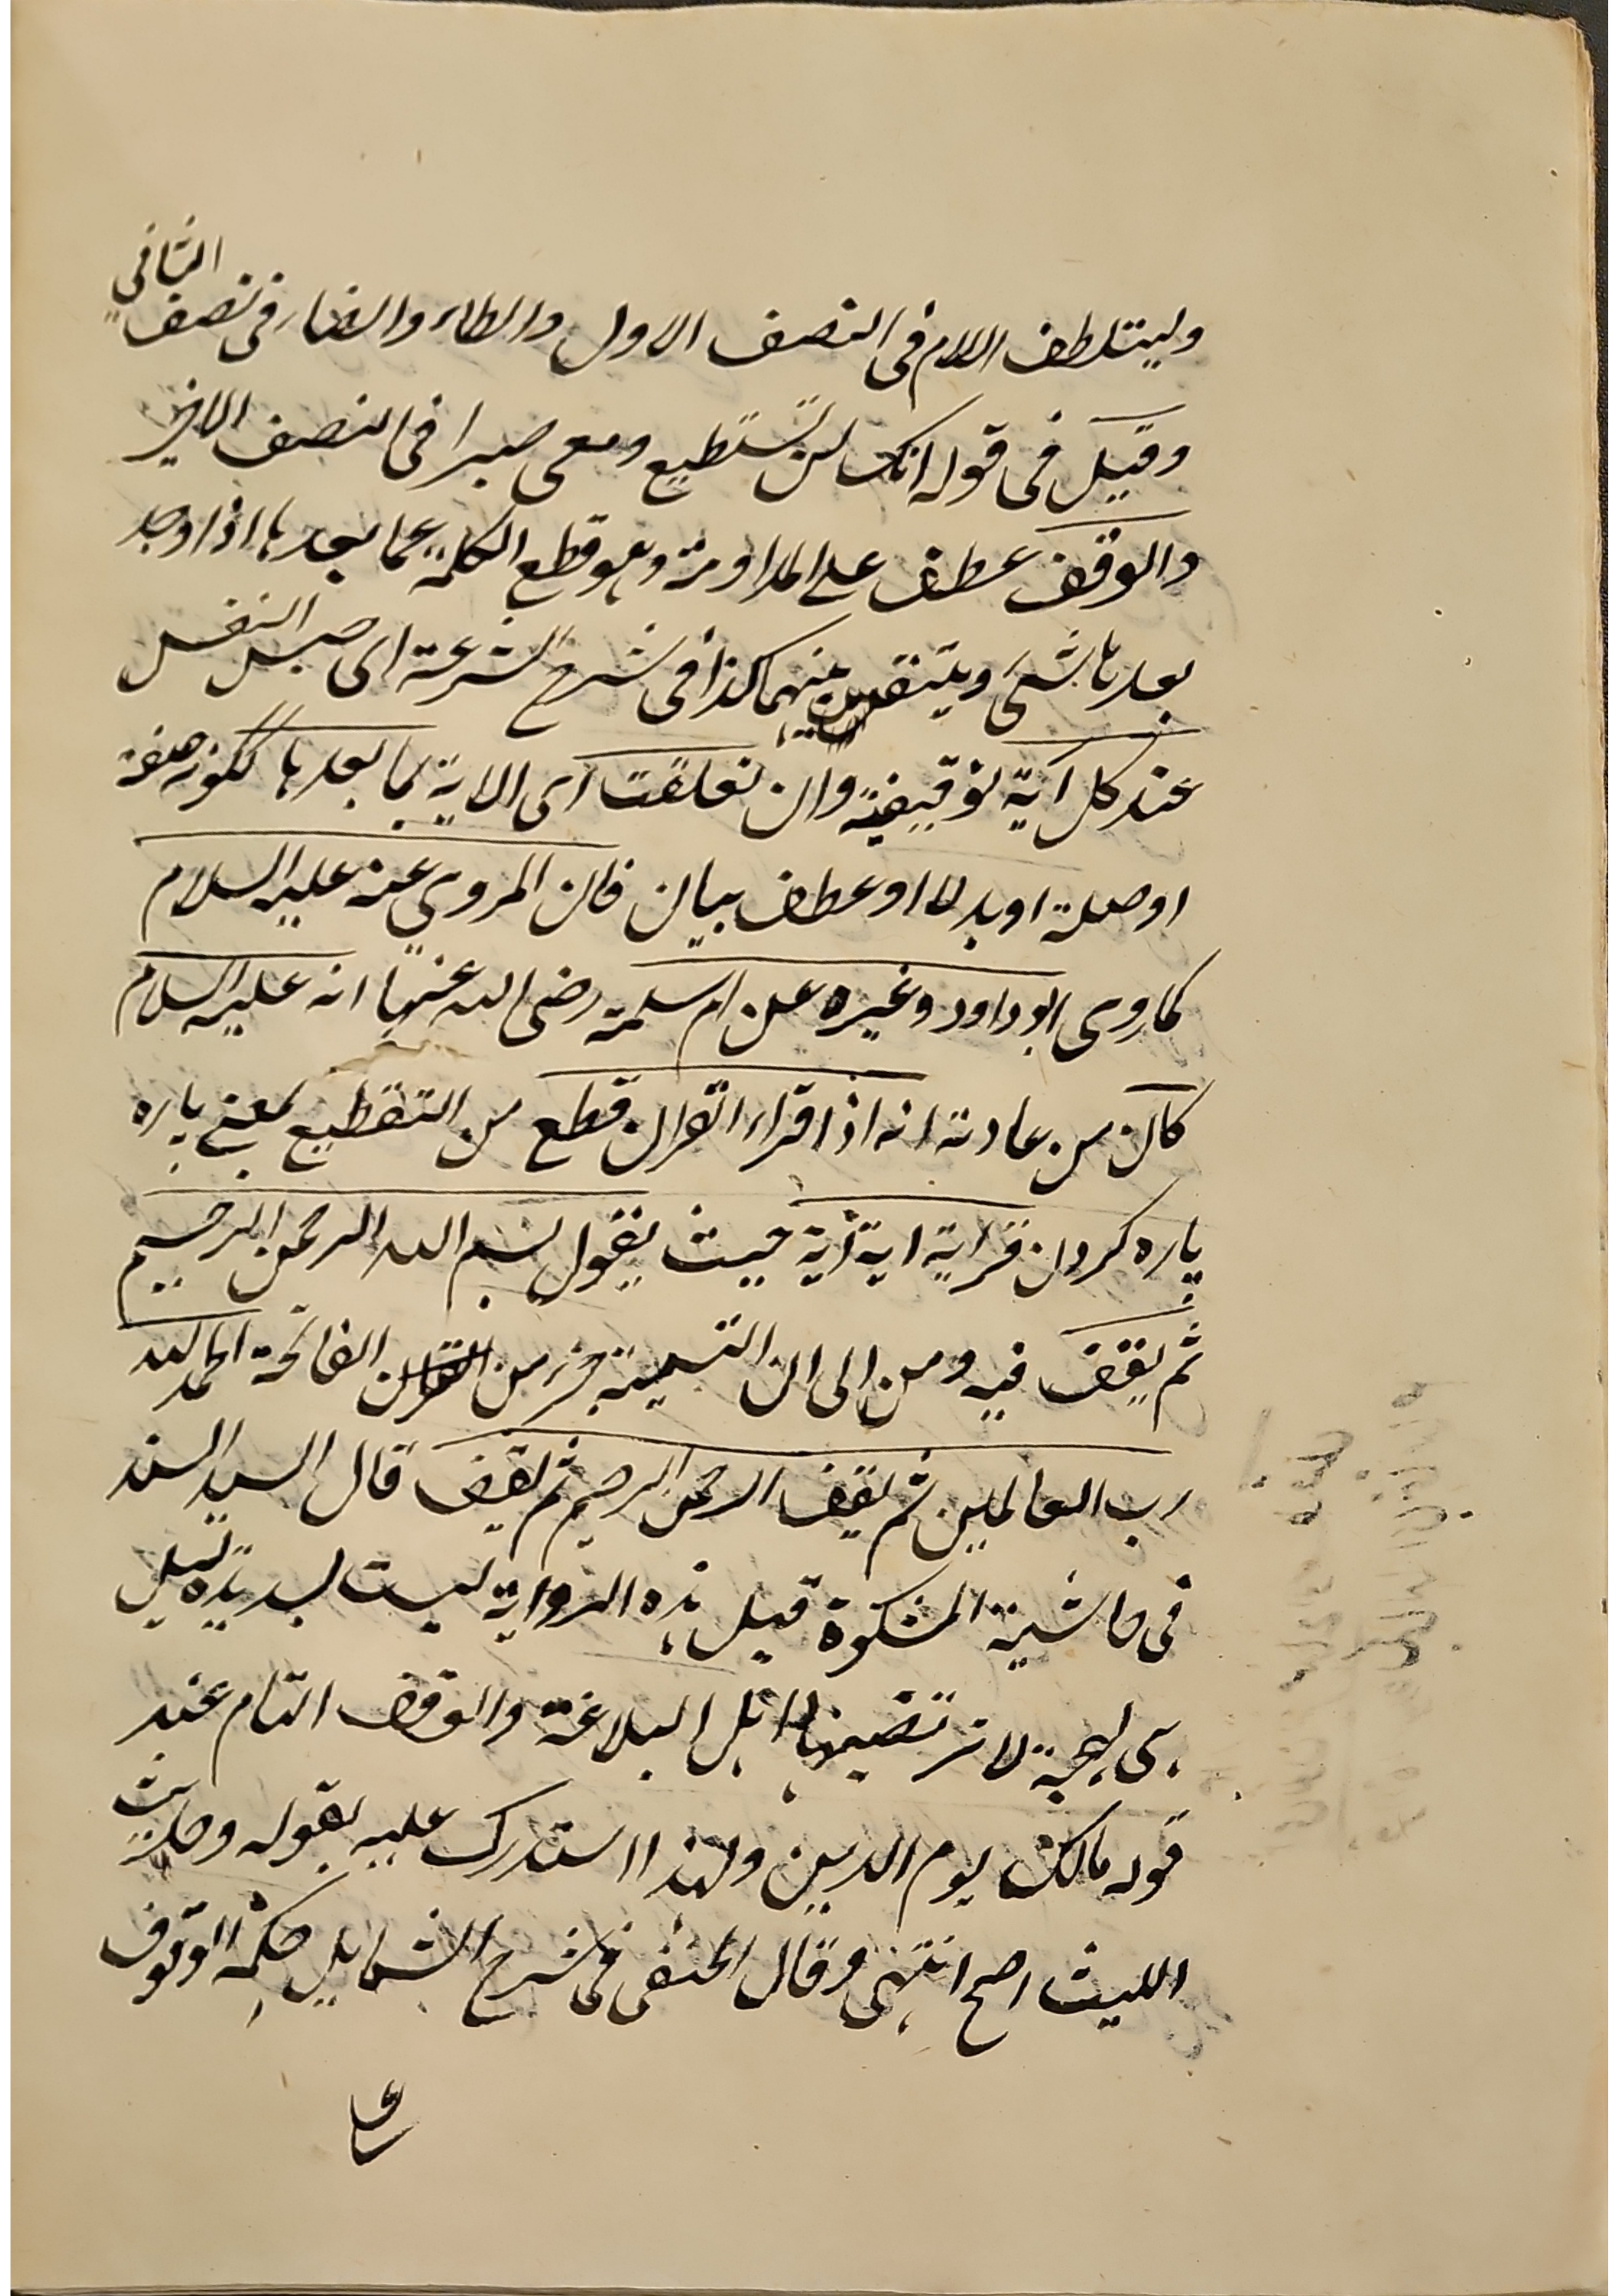 وليتلطف اللام فى النصف الاول والطاء والضاء فى نصف الثانى
وقيل فى قوله انك لن تستطيع ومعى صبرا فى النصف الاخير
والوقف عطف على المداومة وهو قطع الكلمة عما بعدها اذا وجد
بعدها شئ ويتنفس بينهما كذا فى شرح الشرعة اى حبس النفس
عند كل آية توقيفية وان تعلقت اى الاية بما بعدها لكونه صفة
او صلة او بدلا او عطف بيان فان المروى عنه عليه السلام
كما روى ابو داود وغيره عن ام سلمة رضى الله عنها انه عليه السلام
كان من عادته انه اذا قراء القران قطع من التقطيع بمعنى پاره
پاره كردن قراية اية آية حيث يقول بسم الله الرحمن الرحيم
ثم يقف فيه ومن الى ان التسمية جزء من الفاتحة الحمد لله
رب العالمين ثم يقف الرحمن الرحيم ثم يقف قال السيد السند
فى حاشية المشكوة قيل هذه الرواية ليست بسديدة بل
هى لهجة لا ترتضيها اهل البلاغة والوقف التام عند
قوله مالك يوم الدين ولهذا استدرك عليه بقوله وحديث
الليث اصح انتهى وقال الحنفى فى شرح الشمايل حكمة الوقوف